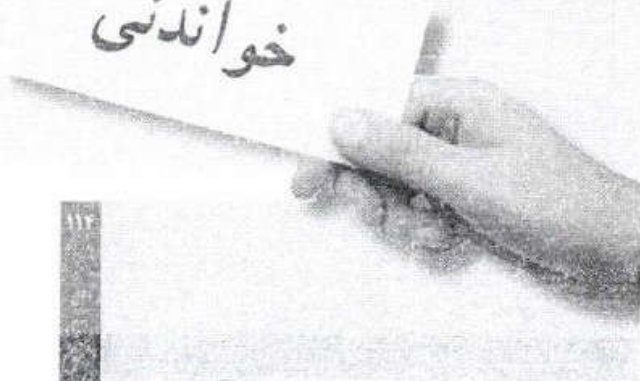 خواندنی
۱۱۴